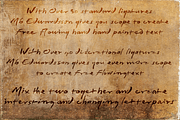 With Over 50 standard ligatures
MG Edwardson gives you scope to create
Free flowing hand hand painted text
With Over 90 discretional ligatures
MG Edwardson gives you even more scope
to create Free Flowing text
Mix the two together and create
interesting and changing letterpairs